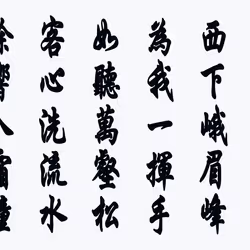 西下峨眉峰
為我一揮手
如聽萬壑松
客心洗流水
餘響入霜鐘